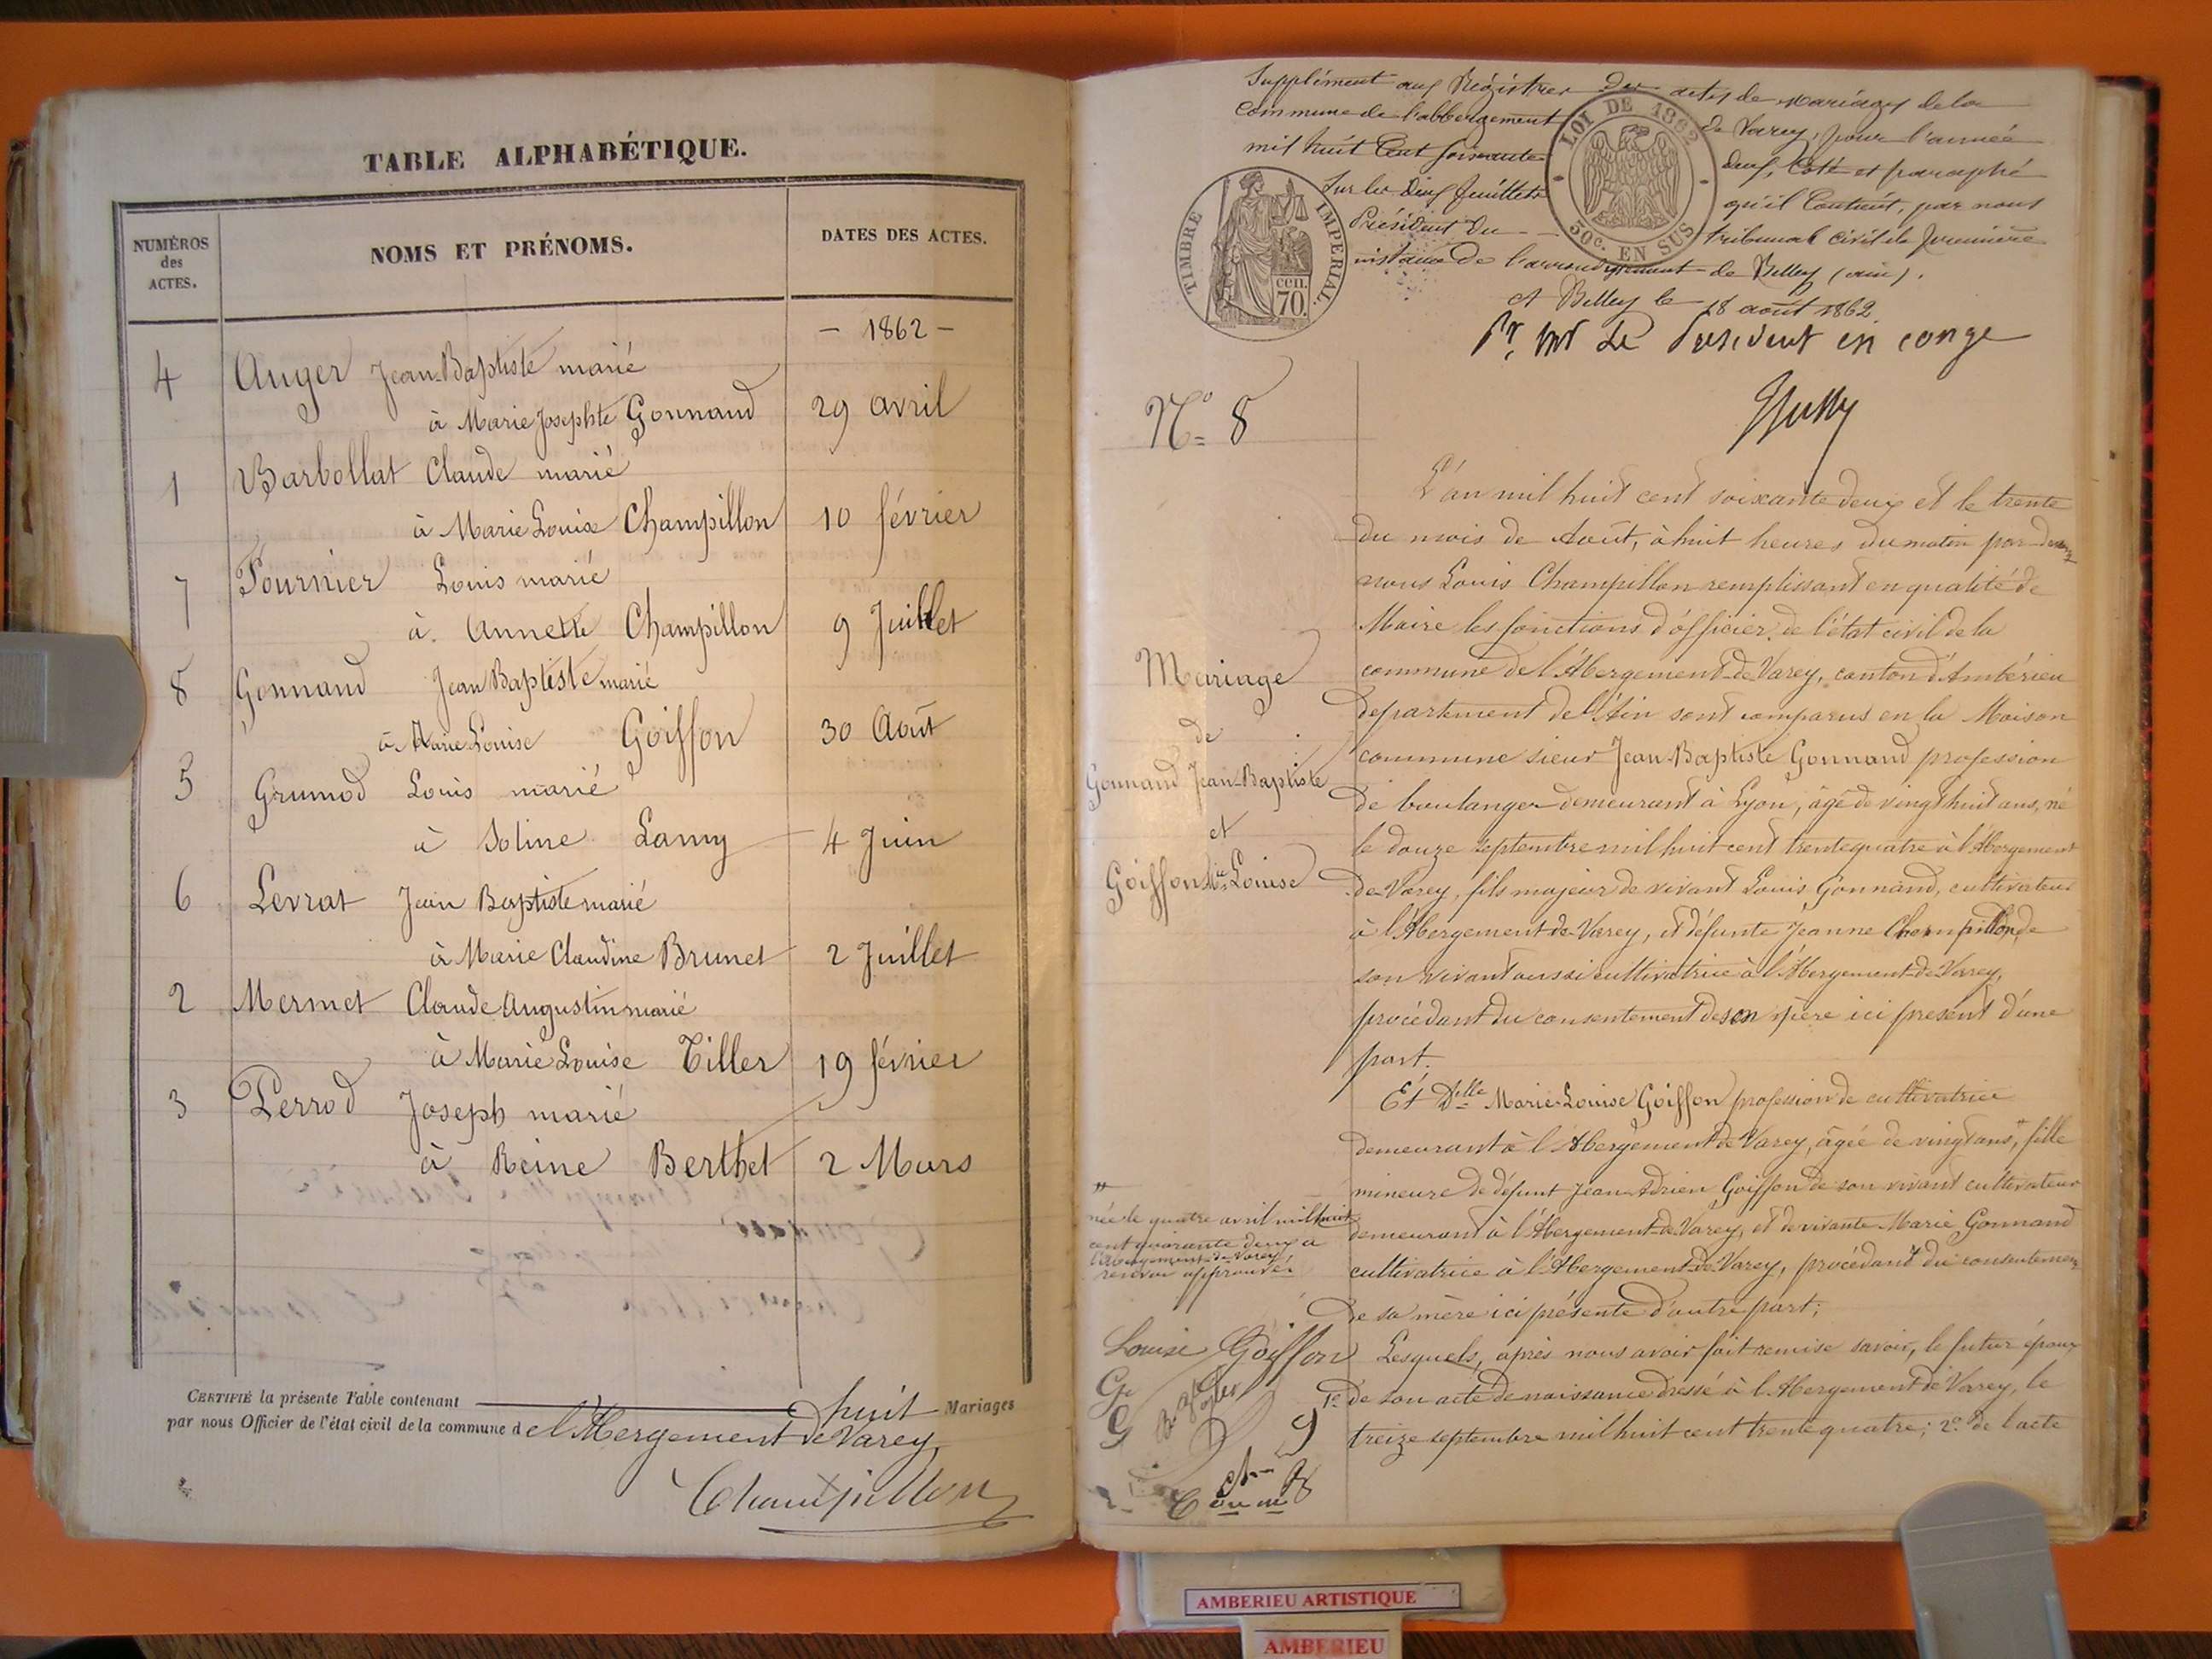 TABLE ALPHABÉTIQUE.
NUMÉROS
des
ACTES.
NOMS ET PRÉNOMS.
DATES DES ACTES.
- 1862 -
4 Auger Jean-Baptiste marié
à Marie Josephte Gonnand 29 avril
1 Barbollat Claude marié
à Marie Louise Champillon 10 février
7 Fournier Louis marié
à Annette Champillon 9 Juillet
8 Gonnand Jean Baptiste marié
à Marie Louise Goiffon 30 Août
5 Grumod Louis marié
à Soline Lamy 4 Juin
6 Levrat Jean Baptiste marié
à Marie Claudine Brunet 2 Juillet
2 Mermet Claude Augustin marié
à Marie Louise Tiller 19 février
3 Perrod Joseph marié
à Reine Berthet 2 Mars
CERTIFIÉ la présente Table contenant huit Mariages
par nous Officier de l'état civil de la commune de l'Abergement de Varey
Champillon
Supplément aux Régistres des actes de mariages de la
Commune de l'abbergement de Varey, pour l'année
mil huit Cent soixante deux, Coté et paraphé
Sur les deux feuillets qu'il Contient, par nous
Président du tribunal civil de première
instance de l'arrondissement de Belley (ain).
A Belley le 18 août 1862
Pr. Mr Le President en conge
LOI DE 1862
50c. EN SUS
TIMBRE IMPERIAL.
cen.
70.
No 8
Mariage
de
Gonnand Jean-Baptiste
et
Goiffon Mie Louise
L'an mil huit cent soixante deux et le trente
du mois de Août, à huit heures du matin par devant
nous Louis Champillon remplissant en qualité de
Maire les fonctions d'officier de l'état civil de la
commune de l'Abergement-de-Varey, canton d'Ambérieu
département de l'Ain sont comparus en la Maison
commune sieur Jean-Baptiste Gonnand profession
de boulanger demeurant à Lyon, âgé de vingt huit ans, né
le douze septembre mil huit cent trente quatre à l'Abergement
de-Varey, fils majeur de vivant Louis Gonnand, cultivateur
à l'Abergement-de-Varey, et défunte Jeanne Champillon, de
son vivant aussi cultivatrice à l'Abergement-de-Varey,
procédant du consentement de son père ici présent d'une
part.
Et Dlle Marie-Louise Goiffon profession de cultivatrice
demeurant à l'Abergement de Varey, âgée de vingt ans, fille
mineure de défunt Jean-Adrien Goiffon de son vivant cultivateur
demeurant à l'Abergement-de-Varey, et de vivante Marie Gonnand
cultivatrice à l'Abergement-de-Varey, procédant du consentement
de sa mère ici présente d'autre part;
Lesquels, après nous avoir fait remise savoir, le futur époux
1o de son acte de naissance dressé à l'Abergement de Varey, le
treize septembre mil huit cent trente quatre; 2o de l'acte
née le quatre avril mil huit
cent quarante deux à
l'Abergement-de-Varey,
renvoi approuvé.
Louise Goiffon
AMBERIEU ARTISTIQUE
AMBERIEU